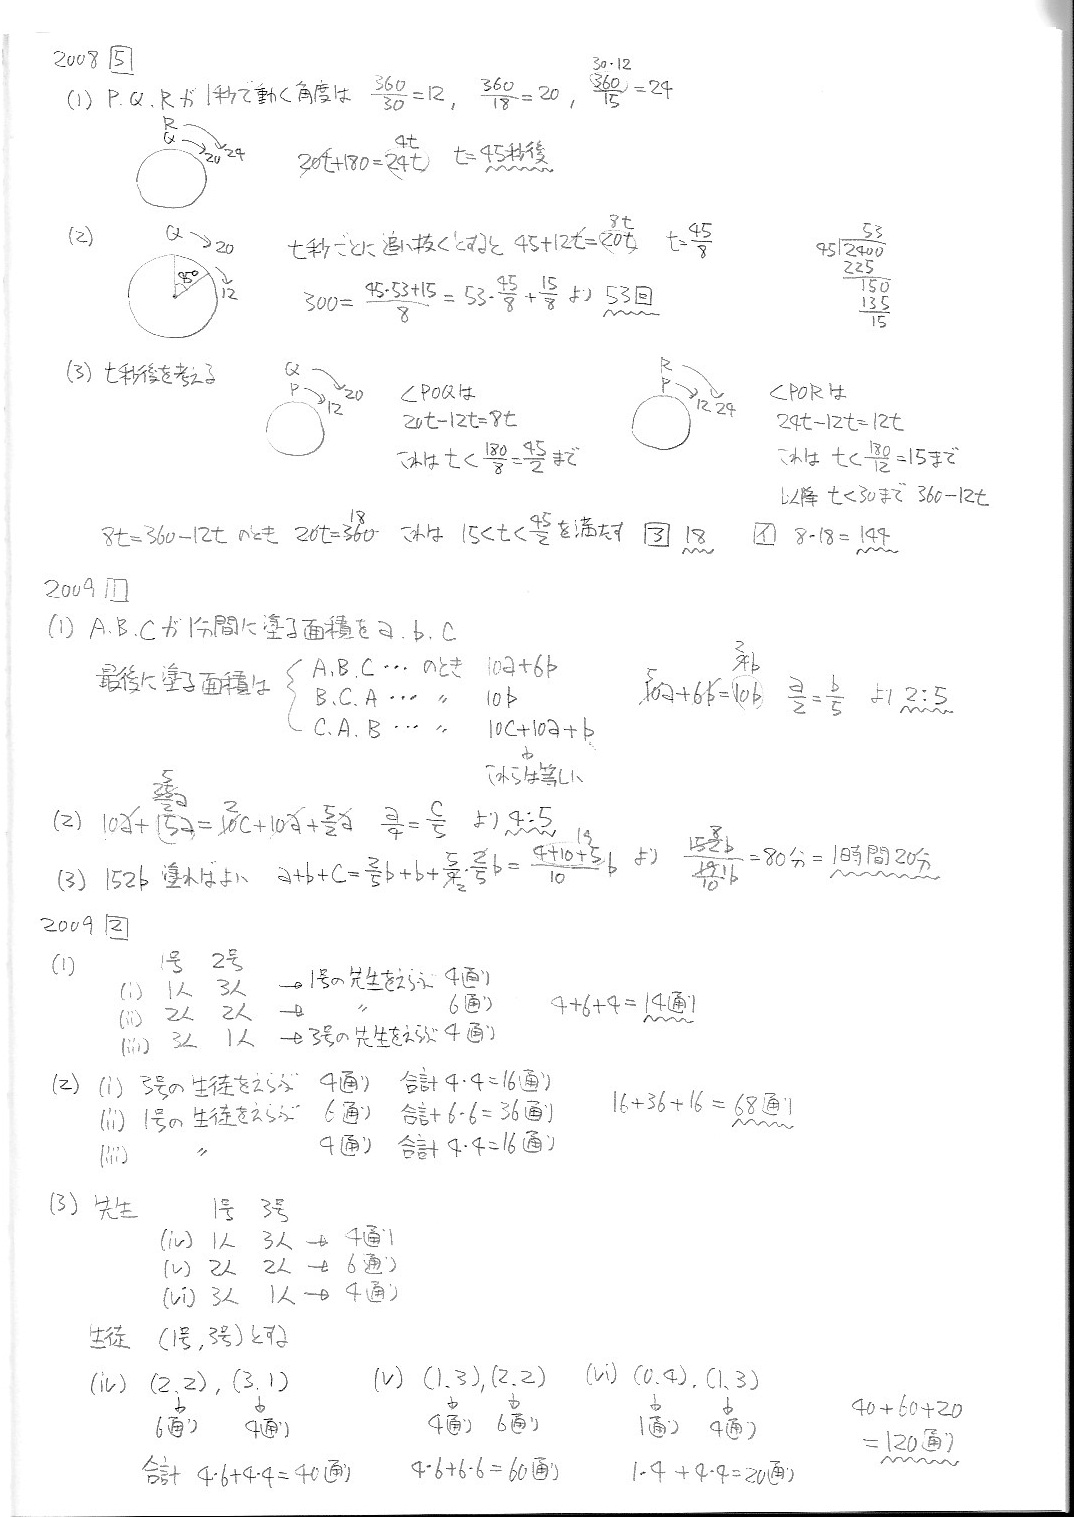 2008 [5]
(1) P.Q.Rが1秒で動く角度は 360/30=12, 360/18=20, 360/15=24
30・12
R
Q
20 24
20t+180=24t t=45秒後
4t
(2) Q 20
45°
12
t秒ごとに追い抜くとすると 45+12t=20t t=45/8
8t
300=(45・53+15)/8=53・45/8+15/8 より 53回
53
45)2400
225
150
135
15
(3) t秒後を考える
Q
P
20
12
∠POQは
20t-12t=8t
これは t<180/8=45/2 まで
R
P
12 24
∠PORは
24t-12t=12t
これは t<180/12=15まで
以降 t<30まで 360-12t
8t=360-12t のとき 20t=360 これは 15<t<45/2を満たす [ウ] 18 [イ] 8・18=144
18
2009 [1]
(1) A.B.Cが1分間に塗る面積をa.b.c
最後に塗る面積は
A.B.C… のとき 10a+6b
B.C.A… 〃 10b
C.A.B… 〃 10c+10a+b
これらは等しい
10a+6b=10b a/2=b/5 より 2:5
(2) 10a+15a=10c+10a+5/2a a/4=c/5 より 4:5
(3) 152b 塗ればよい a+b+c=2/5b+b+5/4・2/5b=(4+10+5)/10 b より 152b/(19/10 b)=80分=1時間20分
2009 [2]
(1) 1号 2号
(i) 1人 3人 → 1号の先生をえらぶ 4通り
(ii) 2人 2人 → 〃 6通り
(iii) 3人 1人 → 3号の先生をえらぶ 4通り
4+6+4=14通り
(2) (i) 3号の生徒をえらぶ 4通り 合計4・4=16通り
(ii) 1号の生徒をえらぶ 6通り 合計6・6=36通り
(iii) 〃 4通り 合計4・4=16通り
16+36+16=68通り
(3) 先生 1号 3号
(iv) 1人 3人 → 4通り
(v) 2人 2人 → 6通り
(vi) 3人 1人 → 4通り
生徒 (1号,3号)とする
(iv) (2.2), (3.1)
6通り 4通り
合計 4・6+4・4=40通り
(v) (1.3),(2.2)
4通り 6通り
4・6+6・6=60通り
(vi) (0.4),(1.3)
1通り 4通り
1・4+4・4=20通り
40+60+20
=120通り